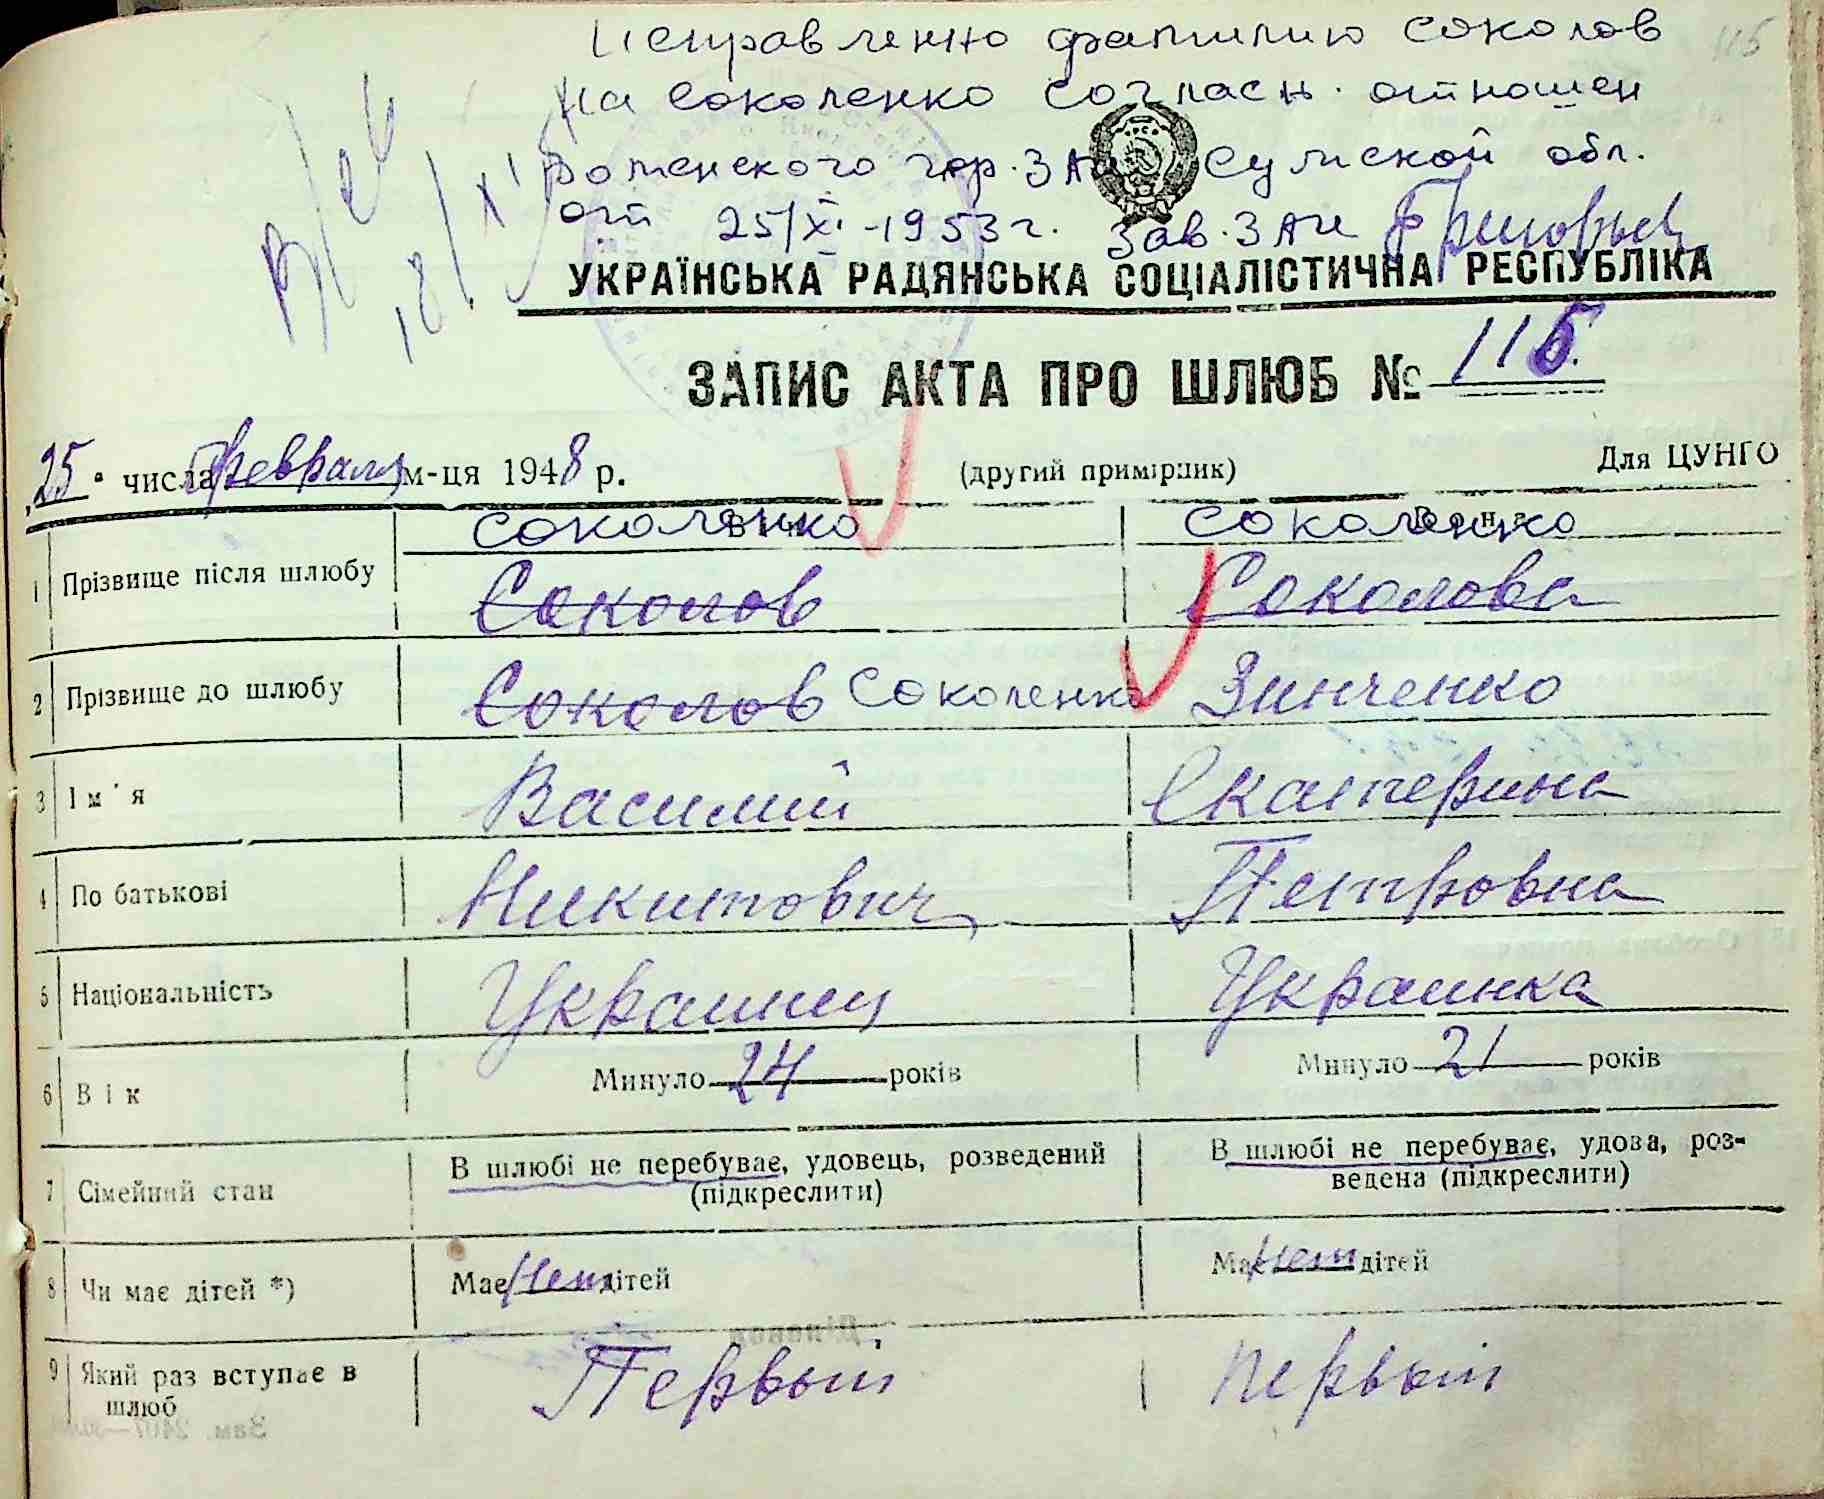 Исправленно фамилию Соколов 115
на Соколенко согласн. отношен
Роменского гор. ЗАГС Сумской обл.
от 25/XI-1953 г. Зав. ЗАГС
УКРАЇНСЬКА РАДЯНСЬКА СОЦІАЛІСТИЧНА РЕСПУБЛІКА
ЗАПИС АКТА ПРО ШЛЮБ № 115.
25 числа февраля м-ця 1948 р. (другий примірник) Для ЦУНГО
Він Вона
Соколенко Соколенко
1 Прізвище після шлюбу Соколов Соколова
2 Прізвище до шлюбу Соколов Соколенко Зинченко
3 Ім'я Василий Екатерина
4 По батькові Никитович Петровна
5 Національність Украинец Украинка
6 Вік Минуло 24 років Минуло 21 років
7 Сімейний стан В шлюбі не перебуває, удовець, розведений (підкреслити) В шлюбі не перебуває, удова, роз-
ведена (підкреслити)
8 Чи має дітей *) Має нет дітей Має нет дітей
9 Який раз вступає в шлюб Первый первый